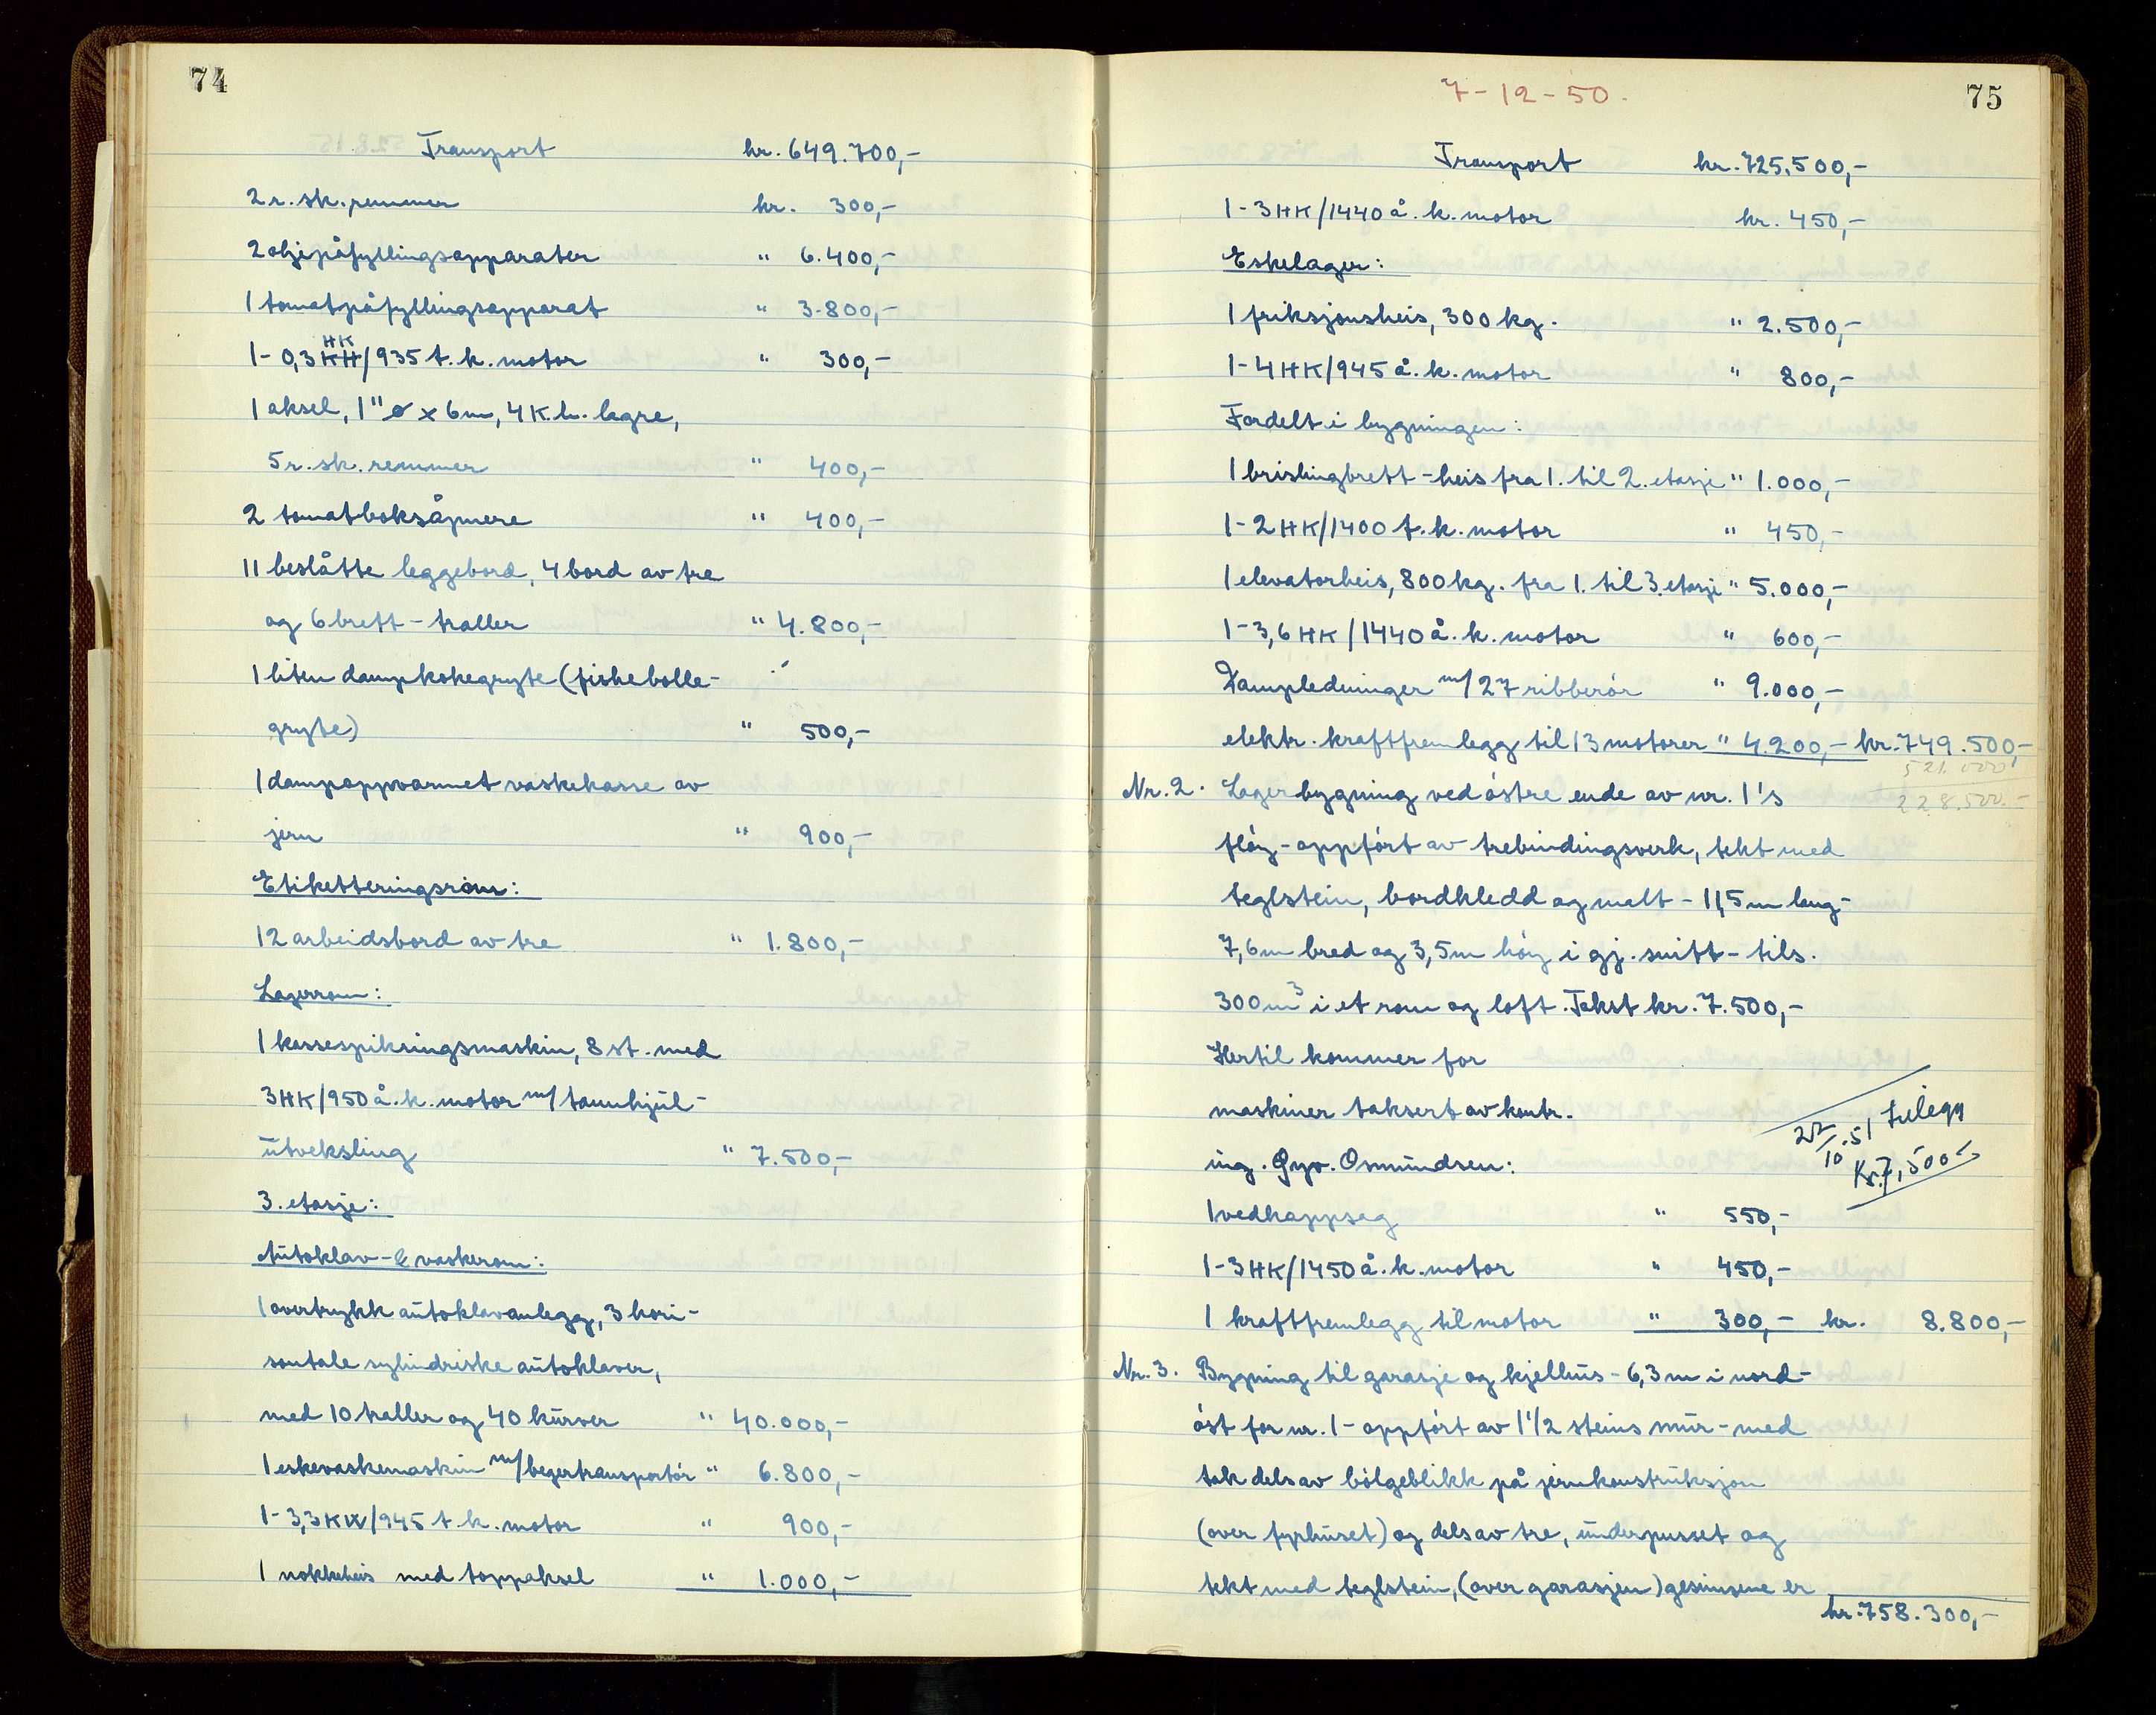 74
Transport kr. 649.700,-
2 r. sk. remmer kr. 300,-
2 oljepåfyllingsapparater " 6.400,-
1 tomatpåfyllingsapparat " 3.800,-
HK
1 - 0,3 KH/935 t. k. motor " 300,-
1 aksel, 1" ø x 6m, 4 K.l. lagre,
5 r. sk. remmer " 400,-
2 tomatboksåpnere " 400,-
11 beslåtte leggebord, 4 bord av tre
og 6 brett-traller " 4.800,-
1 liten dampkokegryte (fiskebolle-
gryte) " 500,-
1 dampoppvarmet vaskekasse av
jern " 900,-
Etiketteringsrom:
12 arbeidsbord av tre " 1.800,-
Lagerrom:
1 kassespikringsmaskin, 8 st. med
3 HK/950 å. k. motor m/ tannhjul-
utveksling " 7.500,-
3. etasje:
Autoklav- & vaskerom:
1 overtrykk autoklavanlegg, 3 hori-
sontale sylindriske autoklaver,
med 10 traller og 40 kurver " 40.000,-
1 eskevaskemaskin m/begertransportör " 6.800,-
1 - 3,3 KW/945 t. k. motor " 900,-
1 nokkeheis med toppaksel " 1.000,-
7-12-50.
75
Transport kr. 725.500,-
1 - 3 HK/1440 å. k. motor kr. 450,-
Eskelager:
1 friksjonsheis, 300 kg. " 2.500,-
1 - 4 HK/945 å. k. motor " 800,-
Fordelt i bygningen:
1 brislingbrett-heis fra 1. til 2. etasje " 1.000,-
1 - 2 HK/1400 t. k. motor " 450,-
1 elevatorheis, 800 kg. fra 1. til 3. etasje " 5.000,-
1 - 3,6 HK/1440 å. k. motor " 600,-
Dampledninger m/ 27 ribberör " 9.000,-
elektr. kraftfremlegg til 13 motorer " 4.200,- kr. 749.500,-
521.000
Nr. 2. Lagerbygning ved östre ende av nr. 1's
228.500.-
flöy - oppfört av trebindingsverk, tekt med
teglstein, bordkledd og malt - 11,5 m lang -
7,6 m bred og 3,5 m höy i gj. snitt - tils.
300 m3 i et rom og loft. Takst kr. 7.500,-
Hertil kommer for
maskiner taksert av kontr.
ing. Gyv. Osmundsen:
22/10.51 tilegg
Kr. 7,500-
1 vedkappsag " 550,-
1 - 3 HK/1450 å. k. motor " 450,-
1 kraftfremlegg til motor " 300,- kr. 8.800,-
Nr. 3. Bygning til garasje og kjelhus - 6,3 m i nord-
öst for nr. 1 - oppfört av 1 1/2 steins mur - med
tak dels av bölgeblikk på jernkonstruksjon
(over fyrhuset) og dels av tre, underpusset og
tekt med teglstein, (over garasjen) gesimsene er
kr. 758.300,-